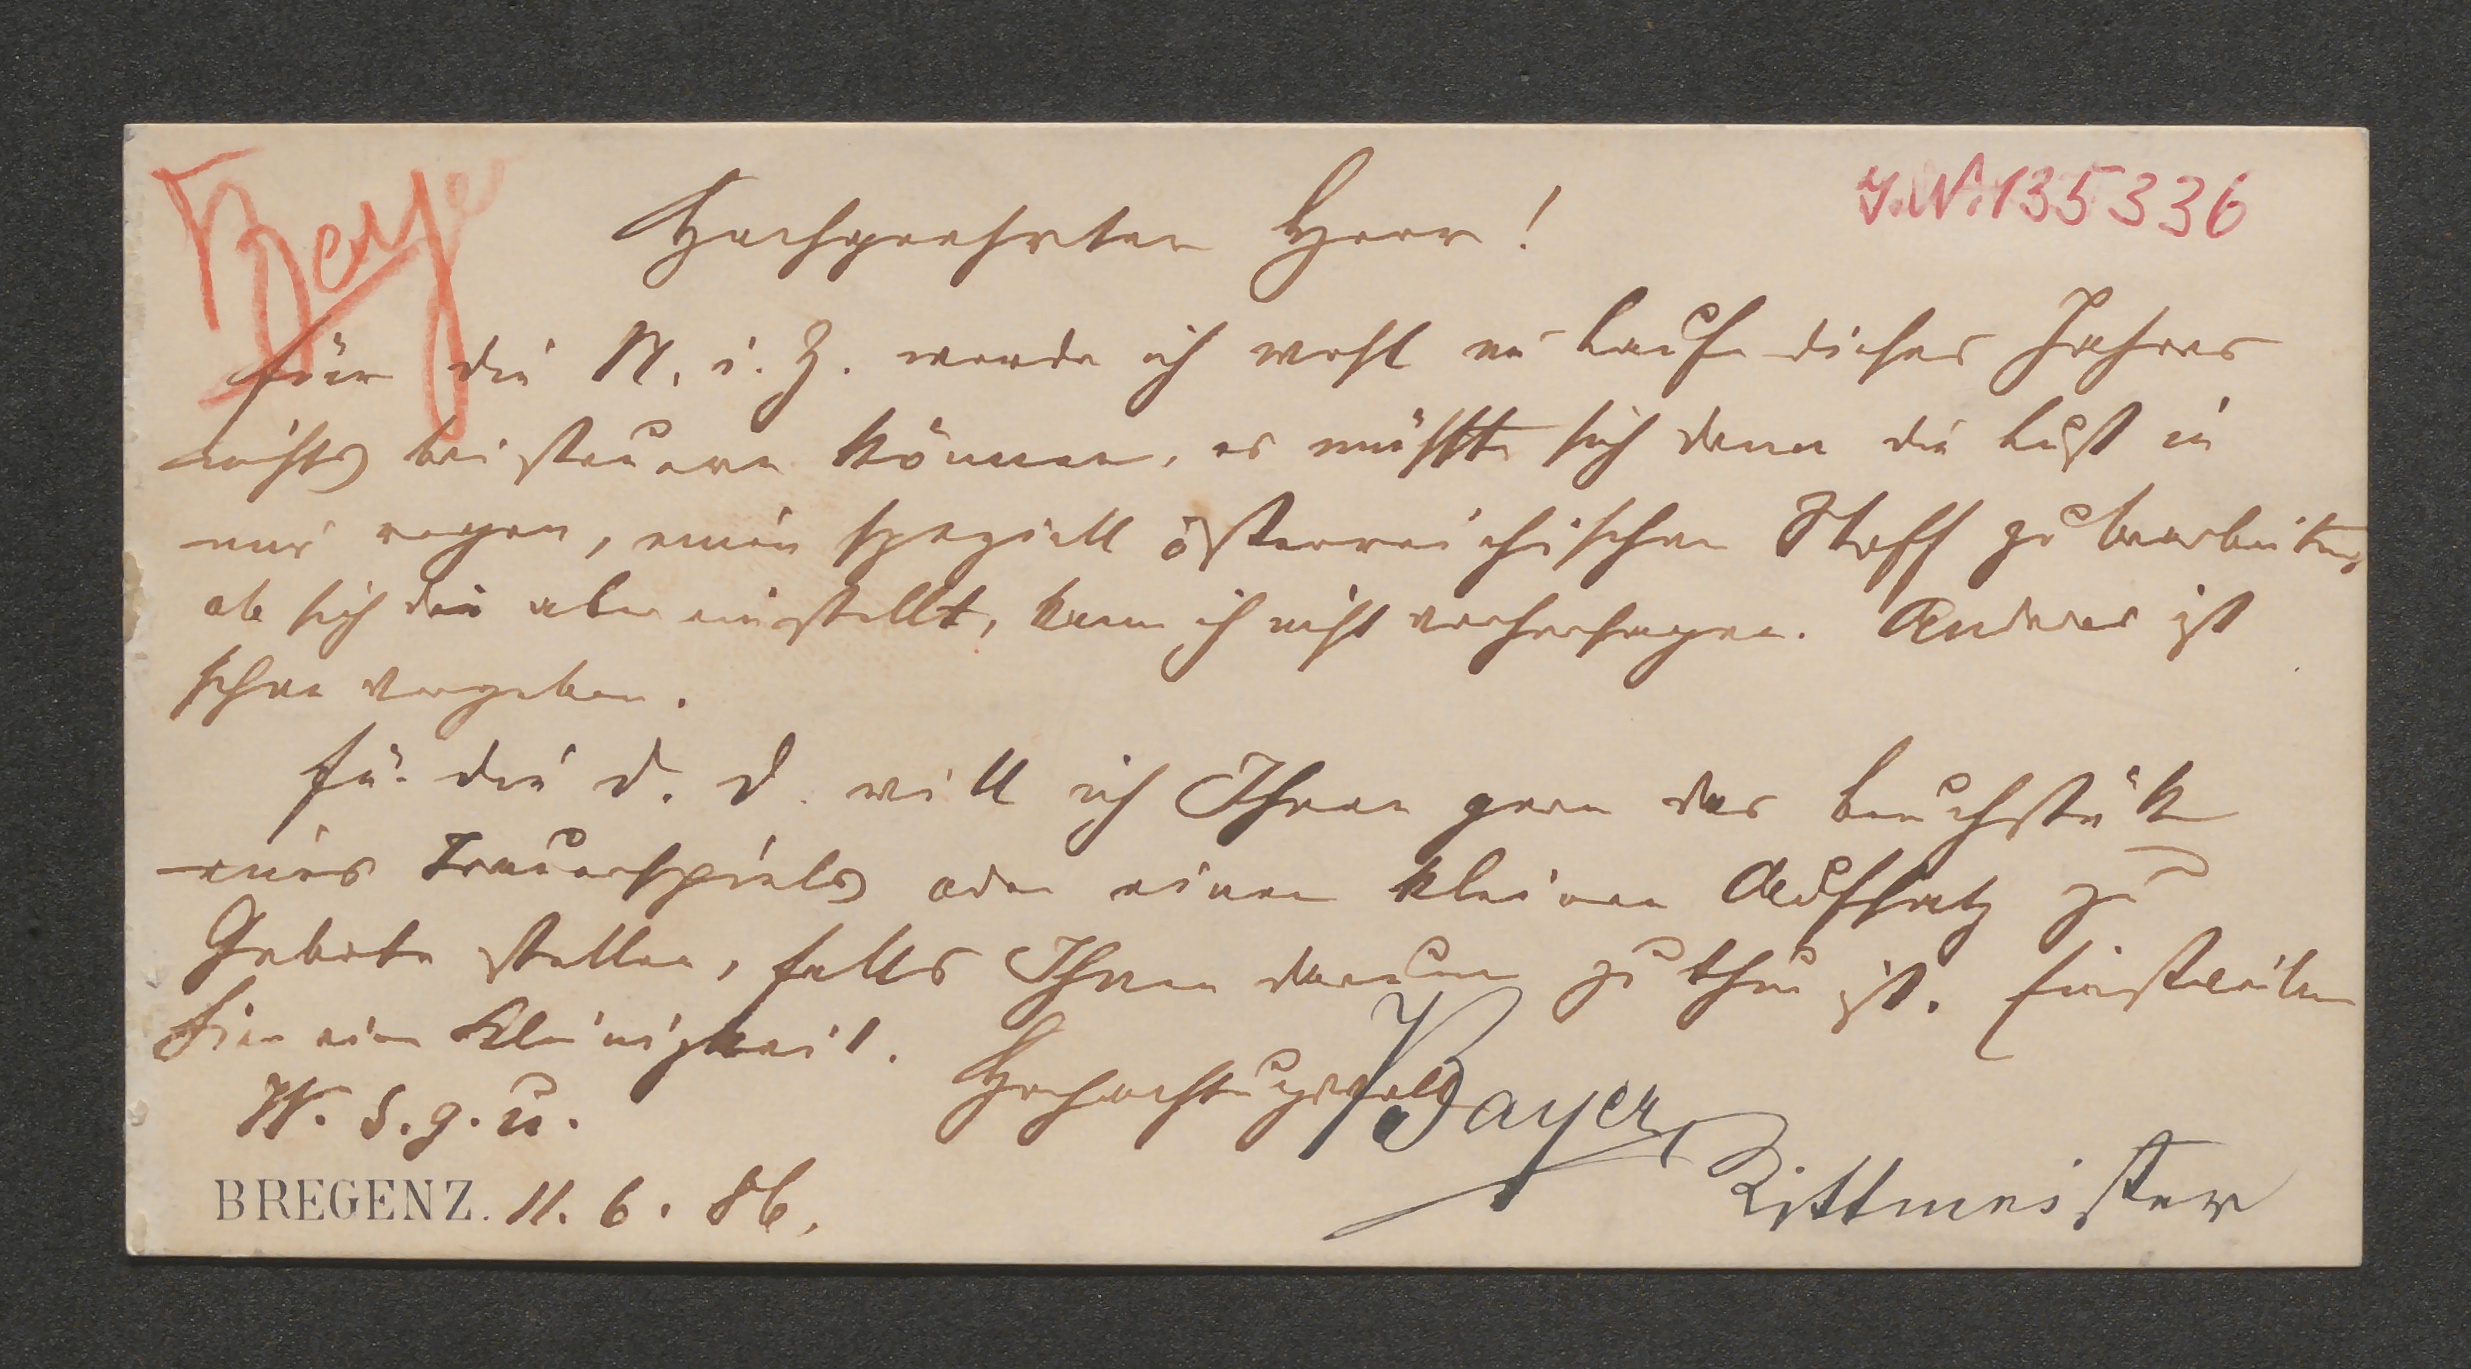 Bay
J.N. 135336
Hochgeehrter Herr!
Für die N. i. Z. werde ich wohl im Laufe dieses Jahres
nichts beisteuern können, es müßte sich denn die Lust in
mir regen, einen speziell österreichischen Stoff zu bearbeiten,
ob sich die aber einstellt, kann ich nicht vorhersagen. Anderes ist
schon vergeben.
Für die d. D. will ich Ihnen gern das Bruchstük
eines Trauerspiels oder einen kleinen Aufsatz zu
Gebote stellen, falls Ihnen darum zu thun ist. Einstweilen
hier eine Kleinigkeit. Hochachtungsvoll
W. S. g. u. Bayer
BREGENZ. 11. 6. 86. Rittmeister